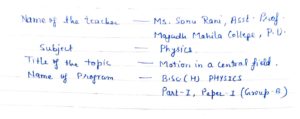 Name of the teacher — Ms. Sonu Rani, Asst. Prof.
Magadh Mahila College, P.U.
Subject — Physics.
Title of the topic — Motion in a central field.
Name of Program — B.Sc (H) PHYSICS
Part-I, Paper-I (Group-B)